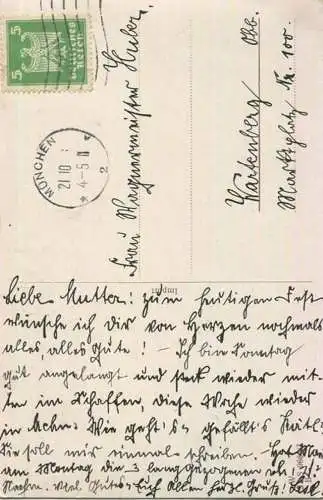 5 5
Deutsches
Reich
MÜNCHEN
21 10
4-5 N
2
Frau Wagnermeister Huber.
Wartenberg Obb.
Marktplatz Nr. 100.
Import
Liebe Mutter! Zum heutigen Fest
wünsche ich dir von Herzen nochmals
alles alles Gute! – Ich bin Sonntag
gut angelangt und steck wieder mit-
ten im Schaffen, diese Woche wieder
in Wie geht's gefällt's Kätl?
Sie soll mir einmal schreiben. – Hat
am Montag die 3 lang gezogenen
Nachm. Viel Gutes Euch Allen Grüße!